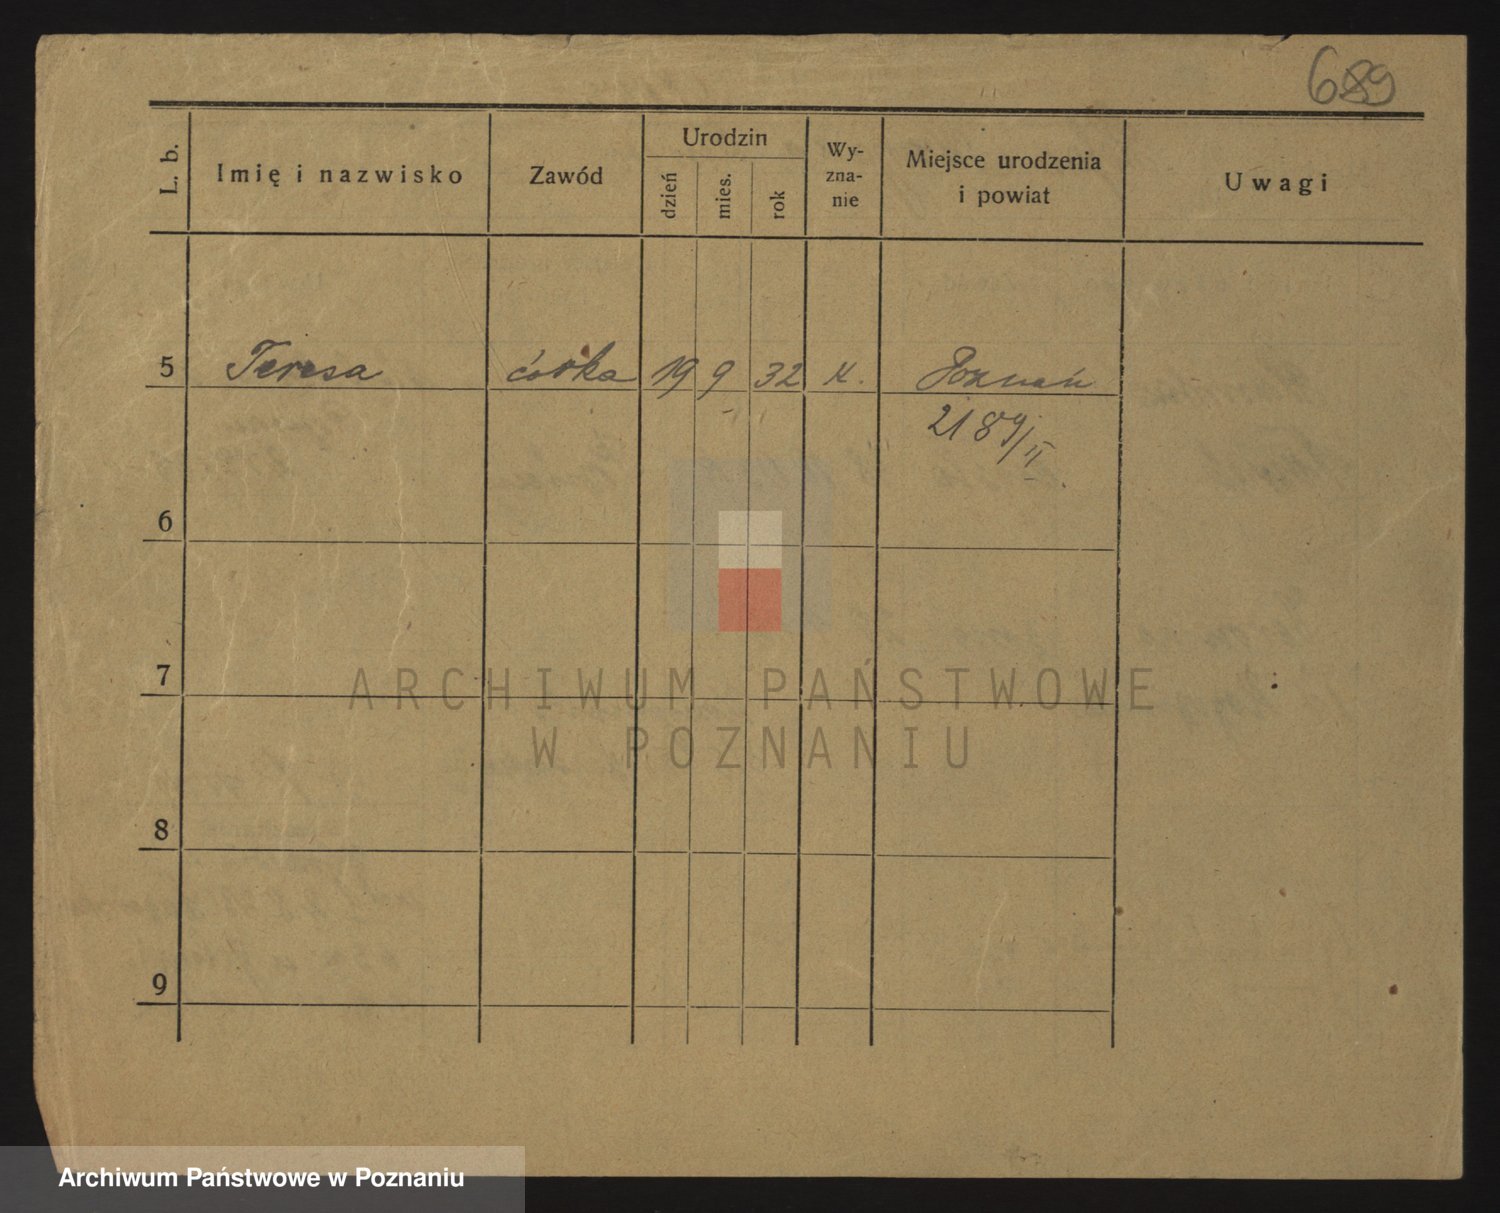 689
L. b.
Imię i nazwisko
Zawód
Urodzin
dzień
mies.
rok
Wy-
zna-
nie
Miejsce urodzenia
i powiat
Uwagi
5 Teresa córka 19 9 32 K. Poznań
2189/II
6
7
8
9
ARCHIWUM PAŃSTWOWE
W POZNANIU
Archiwum Państwowe w Poznaniu